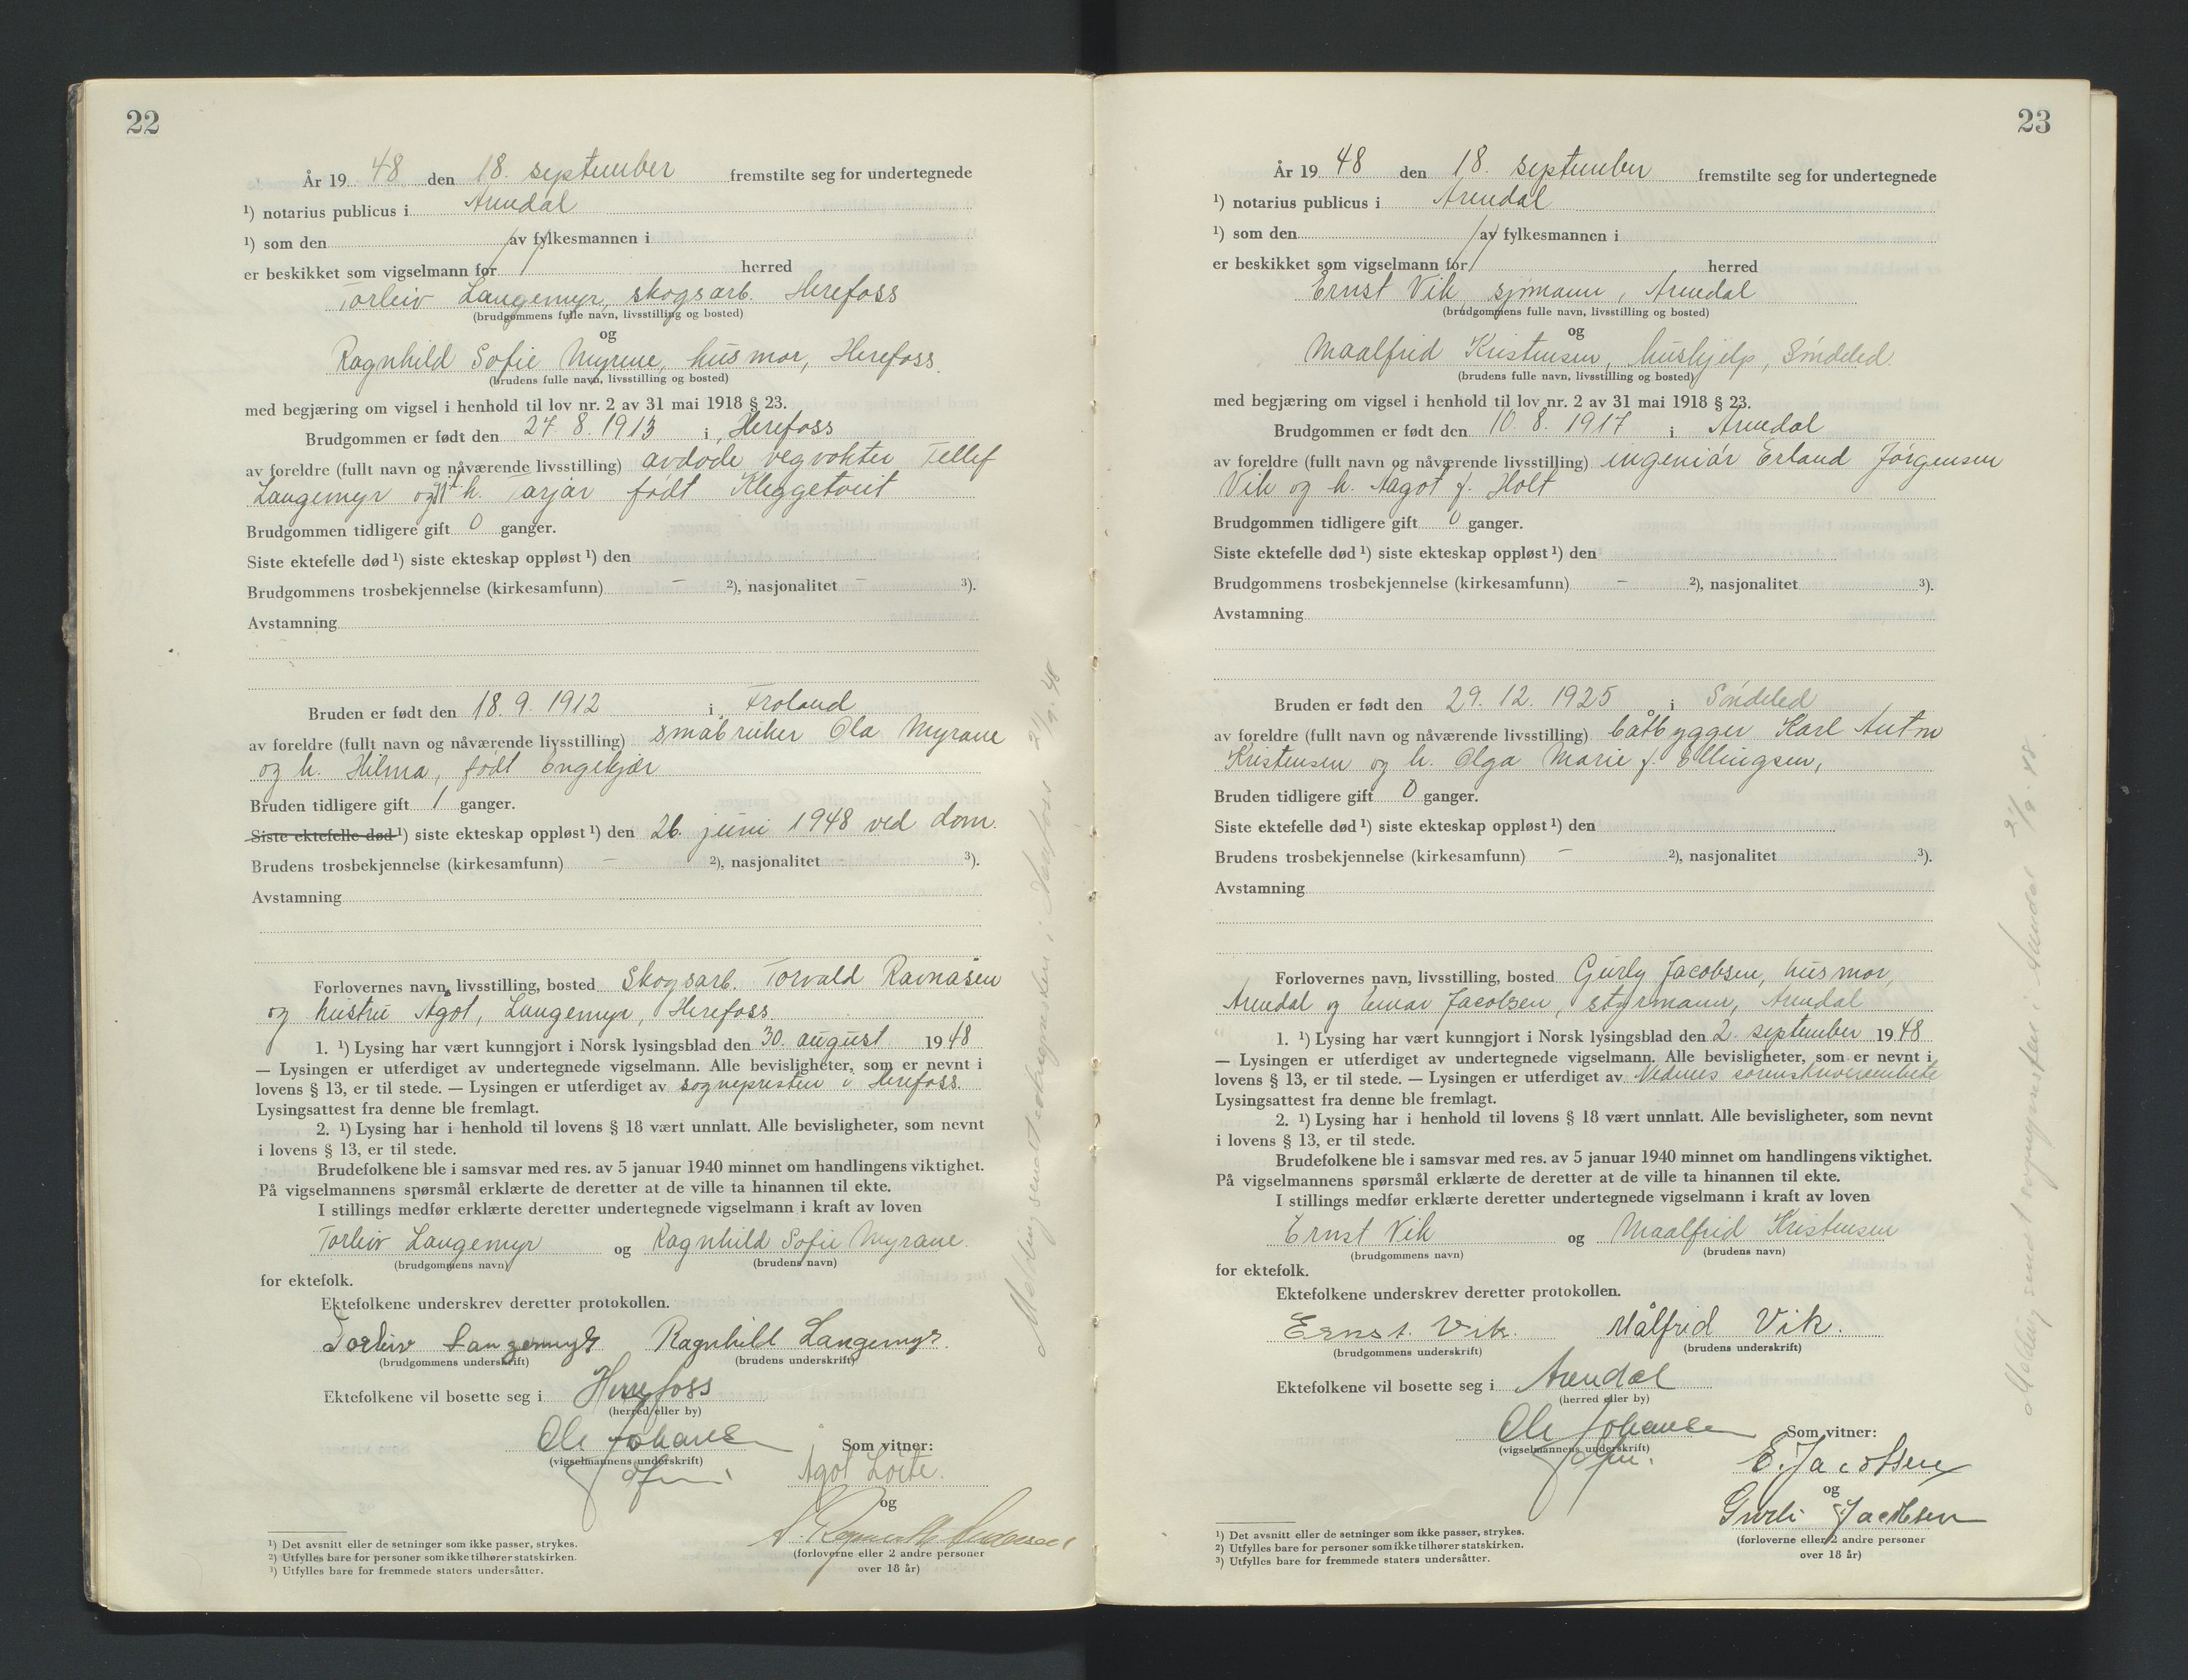 22
År 19 48 den 18. september fremstilte seg for undertegnede
¹) notarius publicus i Arendal
¹) som den av fylkesmannen i
er beskikket som vigselmann for herred
Torleiv Langemyr, skogsarb. Herefoss
(brudgommens fulle navn, livsstilling og bosted)
og
Ragnhild Sofie Myrene, husmor, Herefoss.
(brudens fulle navn, livsstilling og bosted)
med begjæring om vigsel i henhold til lov nr. 2 av 31 mai 1918 § 23.
Brudgommen er født den 27. 8. 1913 i Herefoss
av foreldre (fullt navn og nåværende livsstilling) avdøde vegvokter Tellef
Langemyr og h. Tarjår født Kleggetveit
Brudgommen tidligere gift 0 ganger.
Siste ektefelle død ¹) siste ekteskap oppløst ¹) den
Brudgommens trosbekjennelse (kirkesamfunn) – ²), nasjonalitet – ³).
Avstamning
Bruden er født den 18. 9. 1912 i Froland
av foreldre (fullt navn og nåværende livsstilling) småbruker Ola Myrane
og h. Hilma, født Engekjær
Bruden tidligere gift 1 ganger.
Siste ektefelle død ¹) siste ekteskap oppløst ¹) den 26. juni 1948 ved dom.
Brudens trosbekjennelse (kirkesamfunn) – ²), nasjonalitet – ³).
Avstamning
Forlovernes navn, livsstilling, bosted Skogsarb. Torvald Ravnåsen
og hustru Ågot, Langemyr, Herefoss.
1. ¹) Lysing har vært kunngjort i Norsk lysingsblad den 30. august 19 48
— Lysingen er utferdiget av undertegnede vigselmann. Alle bevisligheter, som er nevnt i
lovens § 13, er til stede. — Lysingen er utferdiget av sognepresten i Herefoss.
Lysingsattest fra denne ble fremlagt.
2. ¹) Lysing har i henhold til lovens § 18 vært unnlatt. Alle bevisligheter, som nevnt
i lovens § 13, er til stede.
Brudefolkene ble i samsvar med res. av 5 januar 1940 minnet om handlingens viktighet.
På vigselmannens spørsmål erklærte de deretter at de ville ta hinannen til ekte.
I stillings medfør erklærte deretter undertegnede vigselmann i kraft av loven
Torleiv Langemyr og Ragnhild Sofie Myrane.
(brudgommens navn) (brudens navn)
for ektefolk.
Ektefolkene underskrev deretter protokollen.
Torleiv Langemyr Ragnhild Langemyr.
(brudgommens underskrift) (brudens underskrift)
Ektefolkene vil bosette seg i Herefoss
(herred eller by)
Ole Johansen Som vitner:
(vigselmannens underskrift)
Agot Loite.
og
Andersen
(forloverne eller 2 andre personer
over 18 år)
¹) Det avsnitt eller de setninger som ikke passer, strykes.
²) Utfylles bare for personer som ikke tilhører statskirken.
³) Utfylles bare for fremmede staters undersåtter.
Melding sendt soknepresten i Herefoss 21/9. 48
23
År 19 48 den 18. september fremstilte seg for undertegnede
¹) notarius publicus i Arendal
¹) som den av fylkesmannen i
er beskikket som vigselmann for herred
Ernst Vik, sjømann, Arendal
(brudgommens fulle navn, livsstilling og bosted)
og
Maalfrid Kristensen, hushjelp, Søndeled.
(brudens fulle navn, livsstilling og bosted)
med begjæring om vigsel i henhold til lov nr. 2 av 31 mai 1918 § 23.
Brudgommen er født den 10. 8. 1917 i Arendal
av foreldre (fullt navn og nåværende livsstilling) ingeniør Erland Jørgensen
Vik og h. Aagot f. Holt
Brudgommen tidligere gift 0 ganger.
Siste ektefelle død ¹) siste ekteskap oppløst ¹) den
Brudgommens trosbekjennelse (kirkesamfunn) – ²), nasjonalitet ³).
Avstamning
Bruden er født den 29. 12. 1925 i Søndeled
av foreldre (fullt navn og nåværende livsstilling) båtbygger Karl Anton
Kristensen og h. Olga Marie f. Ellingsen,
Bruden tidligere gift 0 ganger.
Siste ektefelle død ¹) siste ekteskap oppløst ¹) den
Brudens trosbekjennelse (kirkesamfunn) – ²), nasjonalitet ³).
Avstamning
Forlovernes navn, livsstilling, bosted Gurly Jacobsen, husmor,
Arendal og Einar Jacobsen, styrmann, Arendal
1. ¹) Lysing har vært kunngjort i Norsk lysingsblad den 2. september 19 48
— Lysingen er utferdiget av undertegnede vigselmann. Alle bevisligheter, som er nevnt i
lovens § 13, er til stede. — Lysingen er utferdiget av Nedenes sorenskriverembete
Lysingsattest fra denne ble fremlagt.
2. ¹) Lysing har i henhold til lovens § 18 vært unnlatt. Alle bevisligheter, som nevnt
i lovens § 13, er til stede.
Brudefolkene ble i samsvar med res. av 5 januar 1940 minnet om handlingens viktighet.
På vigselmannens spørsmål erklærte de deretter at de ville ta hinannen til ekte.
I stillings medfør erklærte deretter undertegnede vigselmann i kraft av loven
Ernst Vik og Maalfrid Kristensen
(brudgommens navn) (brudens navn)
for ektefolk.
Ektefolkene underskrev deretter protokollen.
Ernst. Vik. Målfrid Vik.
(brudgommens underskrift) (brudens underskrift)
Ektefolkene vil bosette seg i Arendal
(herred eller by)
Ole Johansen Som vitner:
(vigselmannens underskrift)
E. Jacobsen
og
Gurli Jacobsen
(forloverne eller 2 andre personer
over 18 år)
¹) Det avsnitt eller de setninger som ikke passer, strykes.
²) Utfylles bare for personer som ikke tilhører statskirken.
³) Utfylles bare for fremmede staters undersåtter.
Melding sendt sognepresten i Arendal 21/9. 48.